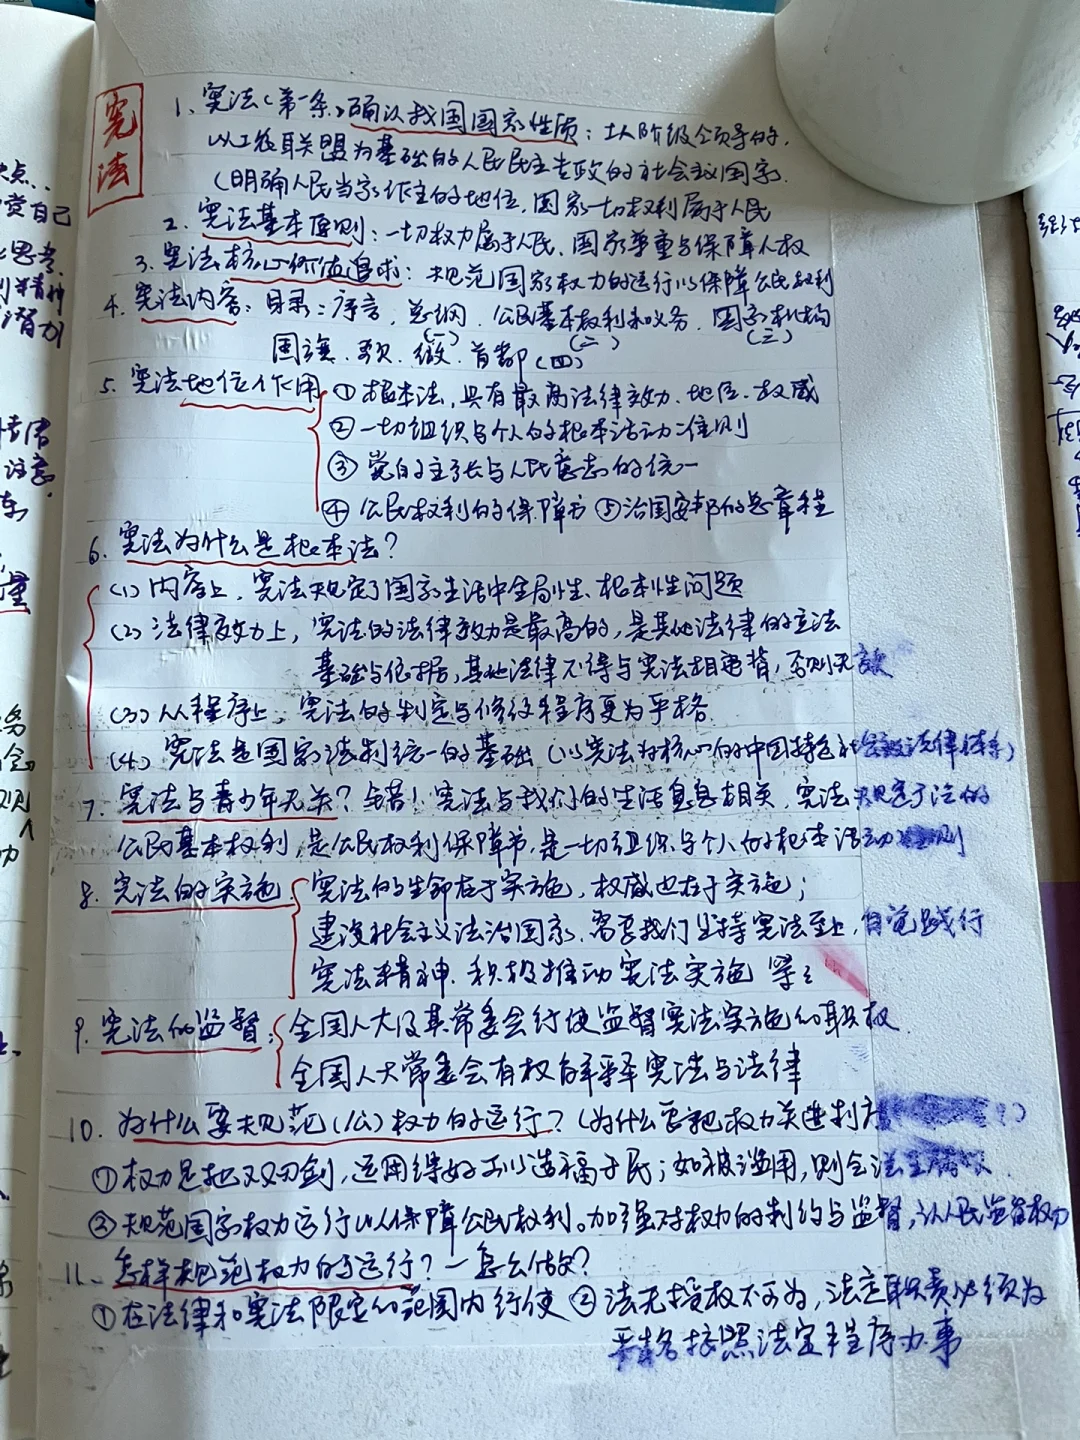 宪法
1、宪法（第一条）确认我国国家性质：工人阶级领导的,
以工农联盟为基础的人民民主专政的社会主义国家.
（明确人民当家作主的地位,国家一切权利属于人民
2. 宪法基本原则：一切权力属于人民、国家尊重与保障人权
3. 宪法核心价值追求：规范国家权力的运行以保障公民权利
4. 宪法内容：目录：序言、总纲、公民基本权利和义务、国家机构
(一) (二) (三)
国旗、歌、徽、首都(四)
5. 宪法地位作用
①根本法,具有最高法律效力、地位、权威
②一切组织与个人的根本活动准则
③党的主张与人民意志的统一
④公民权利的保障书 ⑤治国安邦的总章程
6. 宪法为什么是根本法？
(1)内容上,宪法规定了国家生活中全局性、根本性问题
(2)法律效力上,宪法的法律效力是最高的,是其他法律的立法
基础与依据,其他法律不得与宪法相违背,否则无效
(3)从程序上,宪法的制定与修改程序更为严格.
(4)宪法是国家法制统一的基础（以宪法为核心的中国特色社会主义法律体系）
7、宪法与青少年无关？错！宪法与我们的生活息息相关,宪法规定了
公民基本权利,是公民权利保障书,是一切组织与个人的根本活动 则
8. 宪法的实施
宪法的生命在于实施,权威也在于实施；
建设社会主义法治国家,需要我们坚持宪法至上,自觉践行
宪法精神.积极推动宪法实施
9. 宪法的监督：
全国人大及其常委会行使监督宪法实施的职权.
全国人大常委会有权解释宪法与法律
10. 为什么要规范（公）权力的运行？（为什么要把权力关进制度 ？）
①权力是把双刃剑,运用得好可以造福于民；如被滥用,则会
②规范国家权力运行以保障公民权利。加强对权力的制约与监督,让人民监督权力
11、怎样规范权力的运行？—怎么做？
①在法律和宪法限定的范围内行使 ②法无授权不可为,法定职责必须为
严格按照法定程序办事